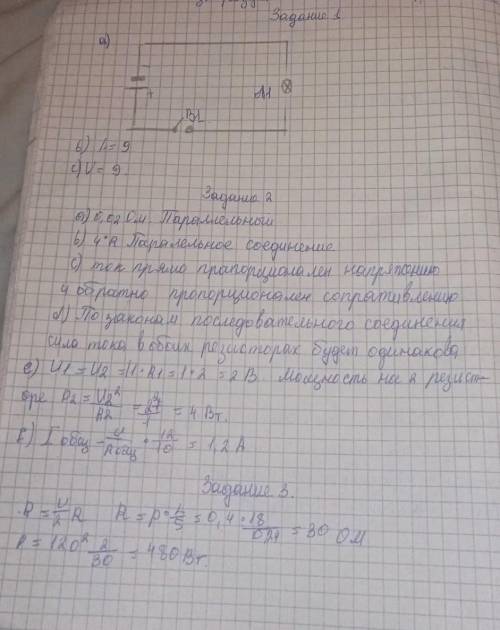 Задание 1
а)
+
Л1
В1
b) А = 9
c) V = 9
Задание 2
а) 0,02 Ом. Параллельный
b) 4*R Паралельное соединение
c) ток прямо прапорционален напряжению
и обратно пропорционален сопративлению
d) По законам последовательного соединения
сила тока в обоих резисторах будет одинакова
e) U1 = U2 = I1·R1 = 1·2 = 2 В. Мощность на 2 резист-
оре P2 = U2² / R2 = = 4 Вт.
f) I общ = U / R общ = 12 / 10 = 1,2 А
Задание 3.
R = p · = 0,4 · 18 = 30 Ом
P = 120² 2 / 30 = 480 Вт.